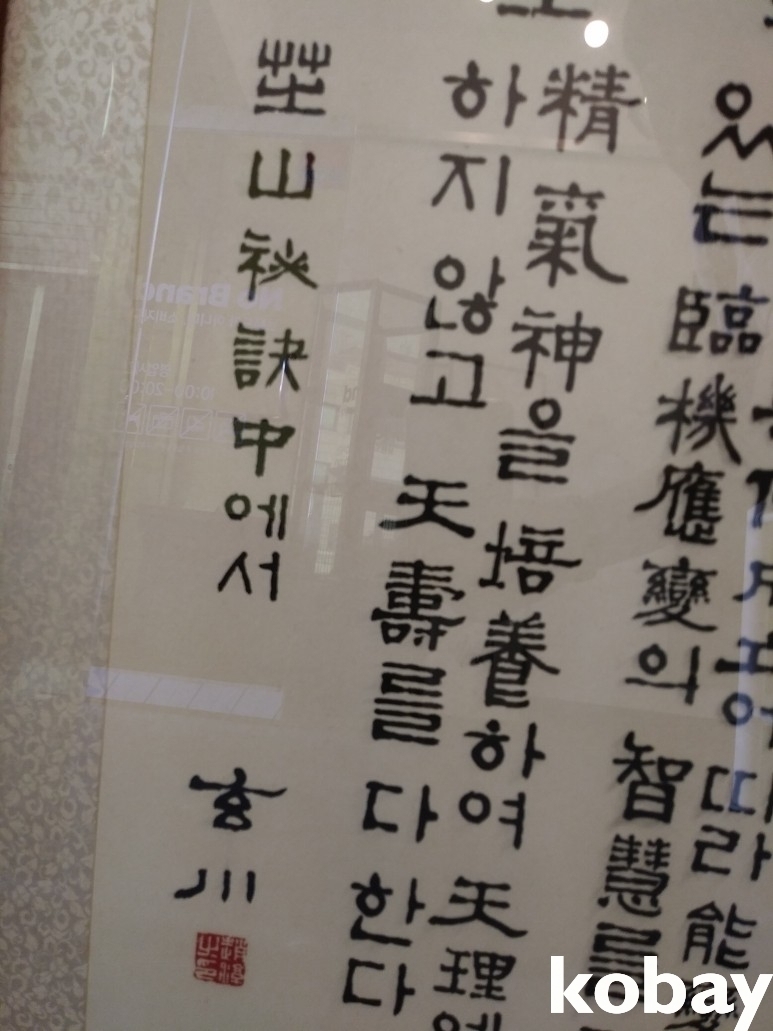 따라 能
있는 臨機應變의 智慧를
精氣神을 培養하여 天理에
하지 않고 天壽를 다한다
山 祕訣中에서
玄川
kobay